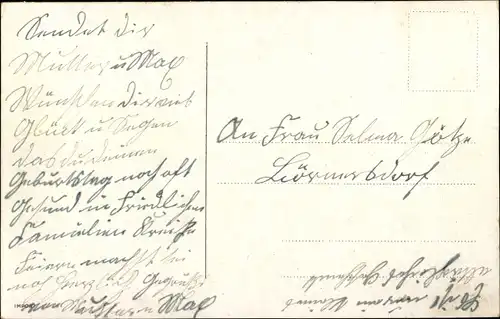 Sendet dir
Mutter u Max
Wünschen dir viel
Glück u Segen
das du deinen
Geburtstag noch oft
Gesund in Friedlichen
Familien Kreise
Feiern
noch Herzlich
von Mutter u Max
An Frau Selma Götze
Börnersdorf